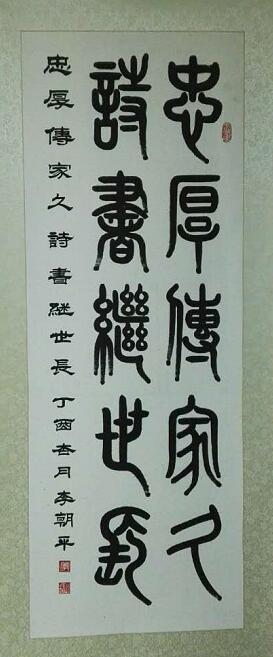 忠厚傳家久
詩書繼世長
忠厚傳家久詩書继世長丁酉杏月李朝平